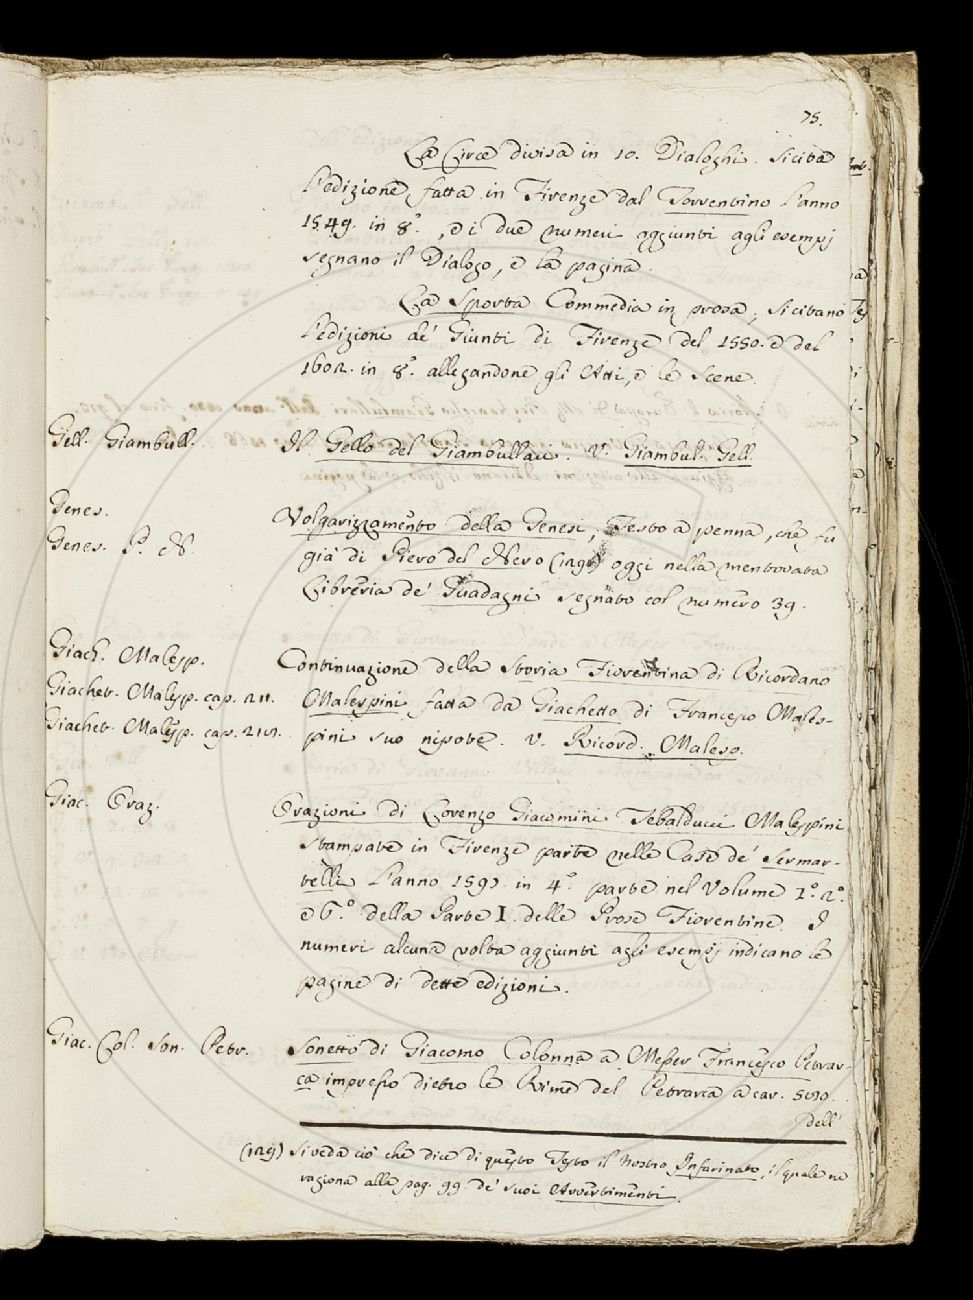 75.
La Circe divisa in 10. Dialoghi. Si cita
l'edizione fatta in Firenze dal Torrentino l'anno
1549. in 8.°, e i due numeri aggiunti agli esempj
segnano il Dialogo, e la pagina.
La Sporta Commedia in prosa; si citano
l'edizioni de' Giunti di Firenze del 1550. e del
1602. in 8.° allegandone gli Atti, e le Scene.
Gell. Giambull. Il Gello del Giambullari. V. Giambul. Gell.
Genes. Volgarizzamento della Genesi, Testo a penna, che fu
Genes. P. N. già di Piero del Nero (129) oggi nella mentovata
Libreria de' Guadagni segnato col numero 39.
Giach. Malesp. Continuazione della Storia Fiorentina di Ricordano
Giachet. Malesp. cap. 211. Malespini fatta da Giachetto di Francesco Males-
Giachet. Malesp. cap. pini suo nipote. V. Ricord. Malesp.
Giac. Oraz. Orazioni di Lorenzo Giacomini Tebalducci Malespini
stampate in Firenze parte nelle Case de' Sermar-
telli l'anno 1597. in 4.° parte nel Volume 1.° 2.°
e 6.° della Parte I. delle Prose Fiorentine. I
numeri alcuna volta aggiunti agli esempj indicano le
pagine di dette edizioni.
Giac. Col. Son. Petr. Sonetto di Giacomo Colonna a Messer Francesco Petrar-
ca impresso dietro le Rime del Petrarca a car.
dell'
(129) Si veda ciò che dice di questo Testo il nostro Infarinato, il quale ne
ragiona alla pag. 99. de' suoi Avvertimenti.